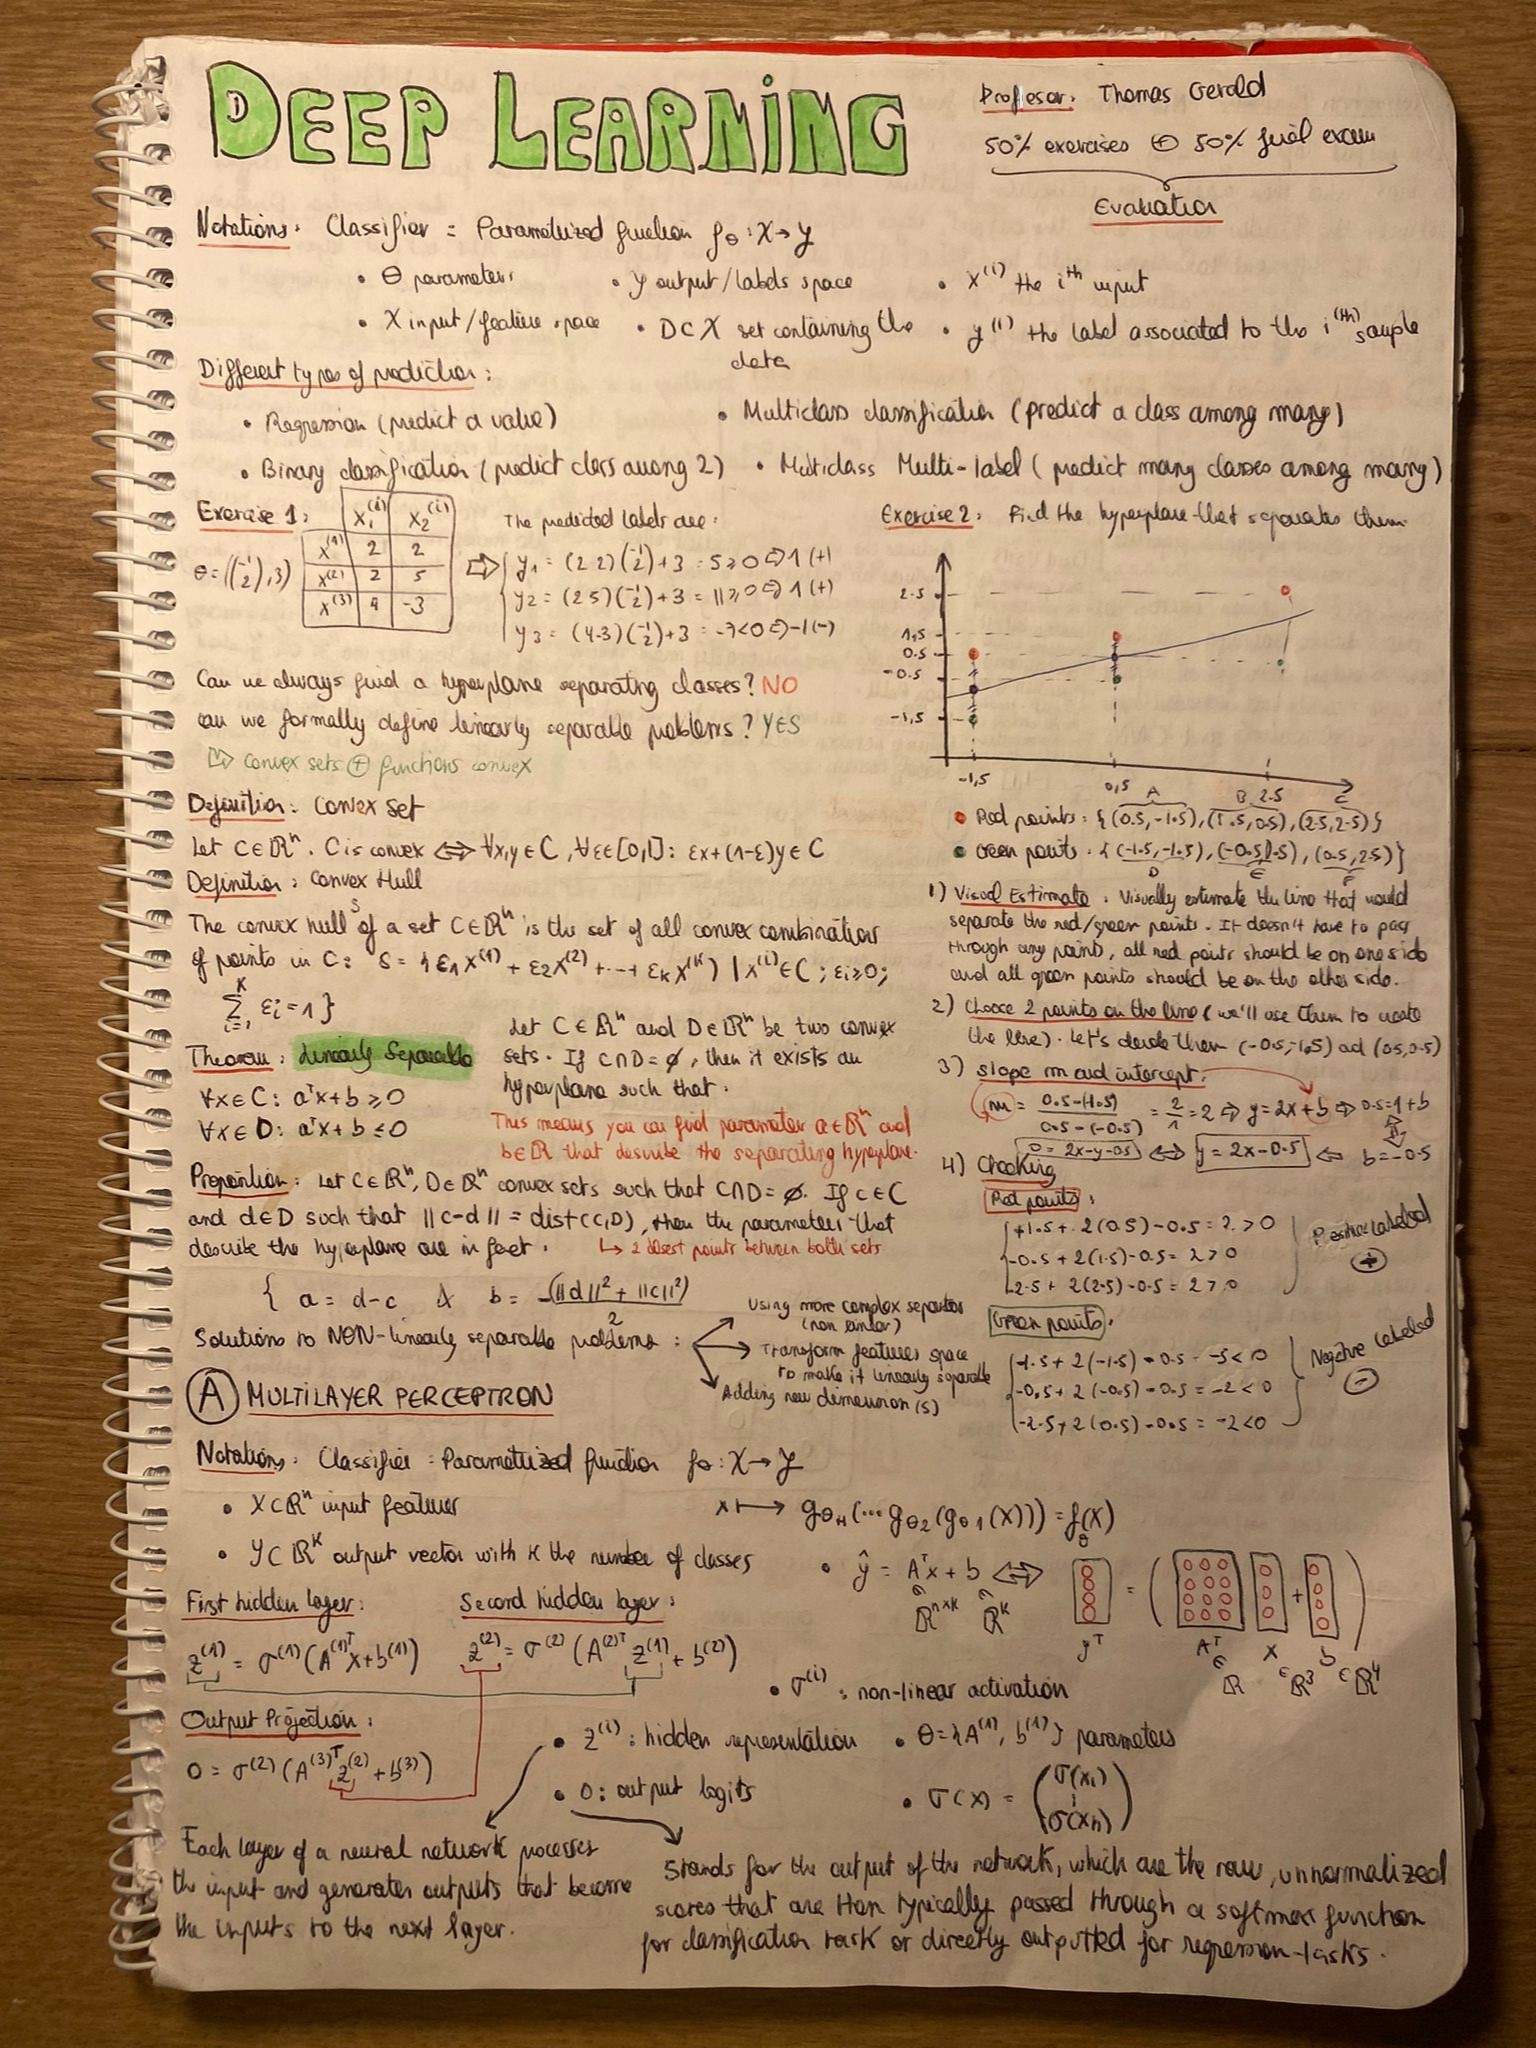 DEEP LEARNING
Profesor: Thomas Gerald
50% exercises ⊕ 50% final exam
Evaluation
Notations: Classifier = Parametrized function fθ : X → Y
• θ parameters • Y output/labels space • x⁽ⁱ⁾ the iᵗʰ input
• X input/feature space • D ⊂ X set containing the data • y⁽ⁱ⁾ the label associated to the i⁽ᵗʰ⁾ sample
Different types of prediction:
• Regression (predict a value) • Multiclass classification (predict a class among many)
• Binary classification (predict class among 2) • Multiclass Multi-label (predict many classes among many)
Exercise 1:
x₁⁽ⁱ⁾ x₂⁽ⁱ⁾
x⁽¹⁾ 2 2
x⁽²⁾ 2 5
x⁽³⁾ 4 -3
θ = ((-1 2), 3)
The predicted labels are:
y₁ = (2 2)(-1 2) + 3 = 5 ≥ 0 ⇒ 1 (+)
y₂ = (2 5)(-1 2) + 3 = 11 ≥ 0 ⇒ 1 (+)
y₃ = (4 -3)(-1 2) + 3 = -7 < 0 ⇒ -1 (-)
Can we always find a hyperplane separating classes? NO
can we formally define linearly separable problems? YES
↳ convex sets ⊕ functions convex
Definition: Convex set
Let C ∈ ℝⁿ. C is convex ⟺ ∀x,y ∈ C, ∀ε ∈ [0,1]: εx + (1-ε)y ∈ C
Definition: Convex Hull
The convex hull S of a set C ∈ ℝⁿ is the set of all convex combination
of points in C: S = {ε₁x⁽¹⁾ + ε₂x⁽²⁾ + ... + εₖx⁽ᴷ⁾) | x⁽ⁱ⁾ ∈ C ; εi ≥ 0;
∑ᵢ₌₁ᴷ εi = 1}
Theorem: Linearly Separable
∀x ∈ C: aᵀx + b ≥ 0
∀x ∈ D: aᵀx + b ≤ 0
Let C ∈ ℝⁿ and D ∈ ℝⁿ be two convex
sets. If C∩D = ∅, then it exists an
hyperplane such that:
This means you can find parameter a ∈ ℝⁿ and
b ∈ ℝ that describe the separating hyperplane.
Proportion: Let C ∈ ℝⁿ, D ∈ ℝⁿ convex sets such that C∩D = ∅. If c ∈ C
and d ∈ D such that ||c-d|| = dist(C,D), then the parameters that
describe the hyperplane are in fact:
↳ 2 closest points between both sets
{ a = d - c & b = -(||d||² + ||c||²) / 2
Solutions to NON-linearly separable problems:
Using more complex separators
(non linear)
Transform features space
to make it linearly separable
Adding new dimension(s)
Exercise 2: Find the hyperplane that separates them
2.5
1,5
0.5
-0.5
-1,5
-1,5 0,5 2.5
A B C
• Red points: {(0.5, -1.5), (1.5, 0.5), (2.5, 2.5)}
• Green points: {(-1.5, -1.5), (-0.5, 0.5), (0.5, 2.5)}
D E F
1) Visual Estimate: Visually estimate the line that would
separate the red/green points. It doesn't have to pass
through any points, all red points should be on one side
and all green points should be on the other side.
2) Choose 2 points on the line (we'll use them to create
the line). Let's denote them (-0.5, -1.5) ad (0.5, 0.5)
3) Slope m and intercept:
m = 0.5-(-1.5) / 0.5-(-0.5) = 2/1 = 2 ⇒ y = 2x + b ⇒ 0.5 = 1 + b
0 = 2x - y - 0.5 ⟺ y = 2x - 0.5 ⇐ b = -0.5
4) Checking
Red points:
+1.5 + 2(0.5) - 0.5 = 2 > 0
-0.5 + 2(1.5) - 0.5 = 2 > 0
-2.5 + 2(2.5) - 0.5 = 2 > 0
Positive labeled
+
Green points:
-1.5 + 2(-1.5) - 0.5 = -5 < 0
-0.5 + 2(-0.5) - 0.5 = -2 < 0
-2.5 + 2(0.5) - 0.5 = -2 < 0
Negative labeled
-
A MULTILAYER PERCEPTRON
Notations: Classifier = Parametrized function fθ : X → Y
x ⟼ gθH(...gθ2(gθ1(x))) = fθ(x)
• X ⊂ ℝⁿ input features
• Y ⊂ ℝᴷ output vector with K the number of classes
• ŷ = Aᵀx + b ⟺
∈ ℝⁿˣᴷ ∈ ℝᴷ
yᵀ = ( Aᵀ x + b )
∈ ℝ ∈ ℝ³ ∈ ℝ⁴
First hidden layer:
z⁽¹⁾ = σ⁽¹⁾(A⁽¹⁾ᵀx + b⁽¹⁾)
Second hidden layer:
z⁽²⁾ = σ⁽²⁾(A⁽²⁾ᵀ z⁽¹⁾ + b⁽²⁾)
Output Projection:
O = σ⁽²⁾(A⁽³⁾ᵀ z⁽²⁾ + b⁽³⁾)
• σ⁽ⁱ⁾: non-linear activation
• z⁽ⁱ⁾: hidden representation • θ = {A⁽¹⁾, b⁽¹⁾} parameters
• O: output logits • σ(x) = (σ(x₁) ⋮ σ(xn))
Each layer of a neural network processes
the input and generates outputs that become
the inputs to the next layer.
Stands for the output of the network, which are the raw, unnormalized
scores that are then typically passed through a softmax function
for classification task or directly outputted for regression tasks.